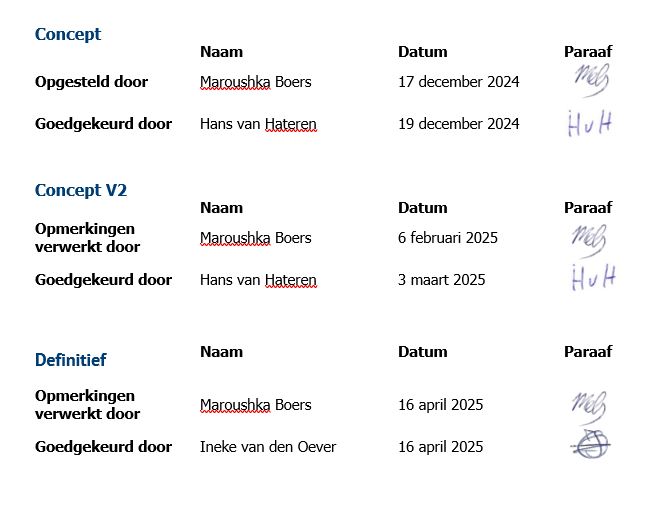 Concept
Naam Datum Paraaf
Opgesteld door Maroushka Boers 17 december 2024 MeB
Goedgekeurd door Hans van Hateren 19 december 2024 HvH
Concept V2
Naam Datum Paraaf
Opmerkingen
verwerkt door Maroushka Boers 6 februari 2025 MeB
Goedgekeurd door Hans van Hateren 3 maart 2025 HvH
Definitief
Naam Datum Paraaf
Opmerkingen
verwerkt door Maroushka Boers 16 april 2025 MeB
Goedgekeurd door Ineke van den Oever 16 april 2025